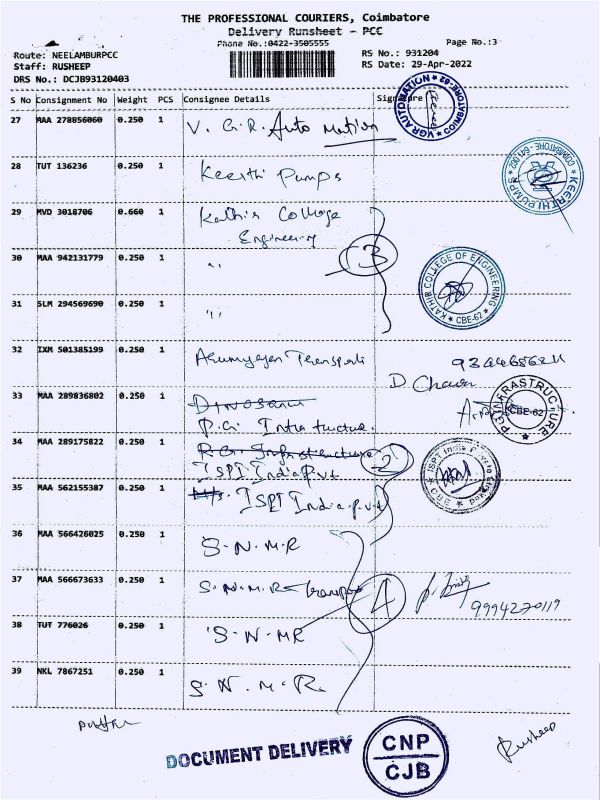 THE PROFESSIONAL COURIERS, Coimbatore
Delivery Runsheet - PCC
Phone No.:0422-3505555
Page No.:3
Route: NEELAMBURPCC
RS No.: 931204
Staff: RUSHEEP
RS Date: 29-Apr-2022
DRS No.: DCJB93120403
S No Consignment No Weight PCS Consignee Details Signature
VGR AUTOMATION COIMBATORE-62
27 MAA 278856060 0.250 1 V. G.R. Auto Mation
28 TUT 136236 0.250 1 Keerthi Pumps
KEERTHI PUMPS COIMBATORE - 641 062
29 MVD 3018706 0.660 1 Kathir College
Engineering
30 MAA 942131779 0.250 1 "
3
KATHIR COLLEGE OF ENGINEERING CBE-62
31 SLM 294569690 0.250 1 "
32 IXM 501385199 0.250 1 Arumugan Transport
D Charan
33 MAA 289836802 0.250 1
P.G. Infra tructure.
PG INFRASTRUCTURE CBE-62
34 MAA 289175822 0.250 1 P.G. Infrastructure
ISPT India Pvt
2
35 MAA 562155387 0.250 1 M/s. ISPT India p.v.t
36 MAA 566426025 0.250 1 S.N.M.R
37 MAA 566673633 0.250 1 S.N.M.R Transport
4
9994270119
38 TUT 776026 0.250 1 S.N.MR
39 NKL 7867251 0.250 1 S.N.M.R.
DOCUMENT DELIVERY
CNP
CJB
Rusheep